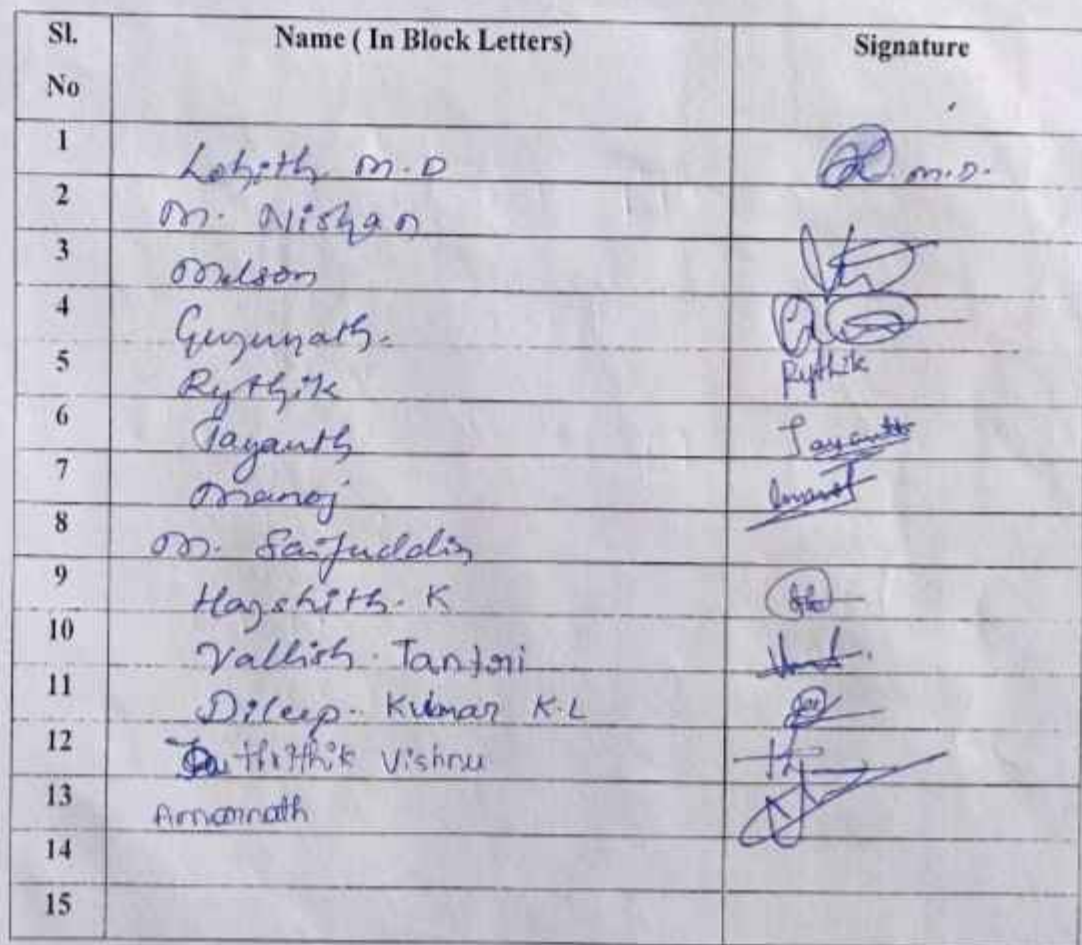 Sl. No Name ( In Block Letters) Signature
1 Lohith M.D M.D.
2 M. Nishan
3 Melson
4 Gurunath.
5 Rythik Rythik
6 Jayanth Jayanth
7 Manoj Manoj
8 M. Saifuddin
9 Harshith. K
10 Vallish. Tantri
11 Dileep. Kumar K.L
12 Vishnu
13 Amarnath
14
15